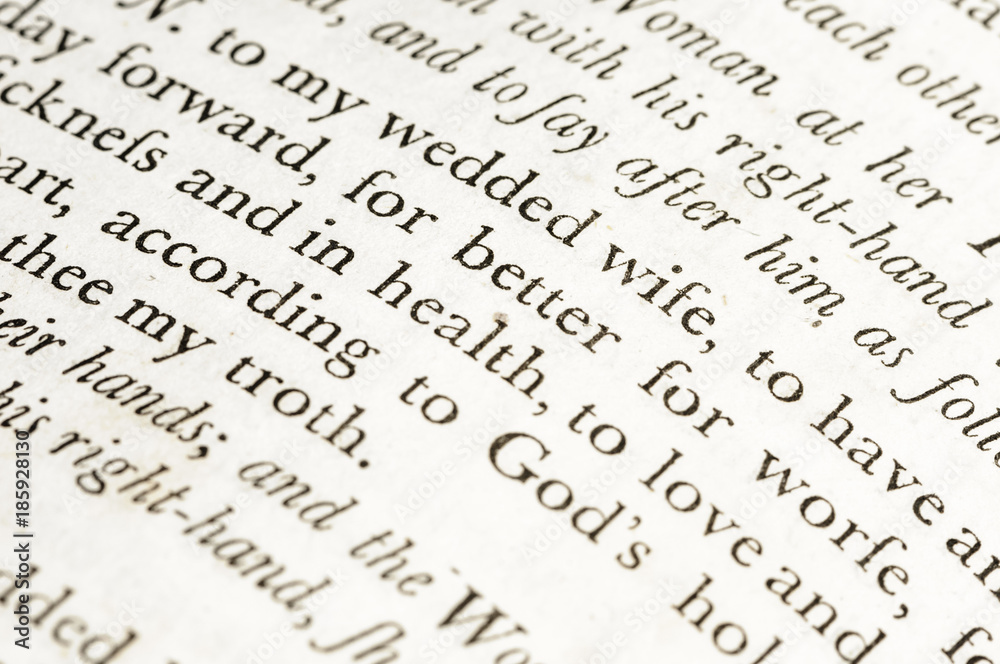 each other
Woman at her
with his right-hand
, and to ſay after him as follo
N. to my wedded wife, to have an
day forward, for better for worſe, fo
ickneſs and in health, to love and
art, according to God's hol
thee my troth.
heir hands; and the Wo
his right-hand, ſh
ded
Adobe Stock | #185928130